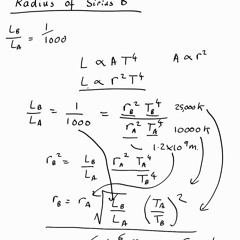 Radius of Sirius B
L_B/L_A = 1/1000
L ∝ A T⁴ A ∝ r²
L ∝ r² T⁴
L_B/L_A = 1/1000 = r_B² T_B⁴ / r_A² T_A⁴ 25,000 K
10000 K
1.2×10⁹ m.
r_B² = L_B/L_A r_A² T_A⁴ / T_B⁴
r_B = r_A √(L_B/L_A) (T_A/T_B)²